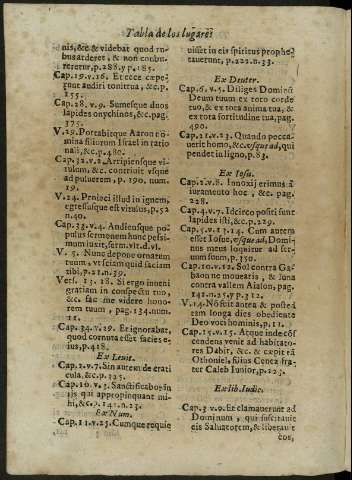 Tabla de los lugares
nis, &c. & videbat quod ru-
bus arderet, & non combu-
reretur, p. 288. y p. 185.
Cap. 19. v. 16. Et ecce cæpe-
runt audiri tonitrua, &c. p.
155.
Cap. 28. v. 9. Sumesque duos
lapides onychinos, &c. pag.
375.
V. 29. Portabitque Aaron no-
mina filiorum Israel in ratio
nali, &c. p. 480.
Cap. 32. v. 2. Arripiensque vi-
tulum, &c. contriuit vsque
ad puluerem, p. 190. num.
19.
V. 24. Proieci illud in ignem,
egressusque est vitulus, p. 52
n. 40.
Cap. 33. v. 4. Audiensque po-
pulus sermonem hunc pessi-
mum luxit, serm. vlt. d. vl.
V. 5. Nunc depone ornatum
tuum, vt sciam quid faciam
tibi, p. 21. n. 39.
Vers. 13. 18. Si ergo inueni
gratiam in conspectu tuo,
&c. fac me videre hono-
rem tuum, pag. 134. num.
11.
Cap. 34. v. 29. Et ignorabat,
quod cornuta esset facies e-
ius, p. 418.
Ex Leuit.
Cap. 2. v. 7. Sin autem de crati
cula, &c. p. 325.
Cap. 10. v. 3. Sanctificabor in
iis qui appropinquant mi-
hi, &c. p. 141. n. 23.
Ex Num.
Cap. 11. v. 25. Cumque requie
uisset in eis spiritus prophe-
tauerunt, p. 222. n. 33.
Ex Deuter.
Cap. 6. v. 5. Diliges Dominũ
Deum tuum ex toto corde
tuo, & ex tota anima tua, &
ex tota fortitudine tua, pag.
490.
Cap. 21. v. 23. Quando pecca-
uerit homo, &c. vsque ad, qui
pendet in ligno, p. 83.
Ex Iosu.
Cap. 2. v. 8. Innoxij erimus à
iuramento hoc, &c. pag.
228.
Cap. 4. v. 7. Idcirco positi sunt
lapides isti, &c. p. 229.
Cap. 5. v. 13. 14. Cum autem
esset Iosue, vsque ad, Domi-
nus meus loquitur ad ser-
uum suum, p. 350.
Cap. 10. v. 12. Sol contra Ga-
baon ne mouearis, & luna
contra vallem Aialon, pag.
141. n. 25. y p. 312.
V. 14. Nõ fuit antea & posteà
tam longa dies obediente
Deo voci hominis, p. 11.
Cap. 15. v. 15. Atque inde cõs
cendens venit ad habitato-
res Dabir, &c. & cepit eã
Othoniel, filius Cenez fra-
ter Caleb Iunior, p. 225.
Ex lib. Iudic.
Cap. 3. v. 9. Et clamauerunt ad
Dominum, qui suscitauit
eis Saluatorem, & liberauit
eos,